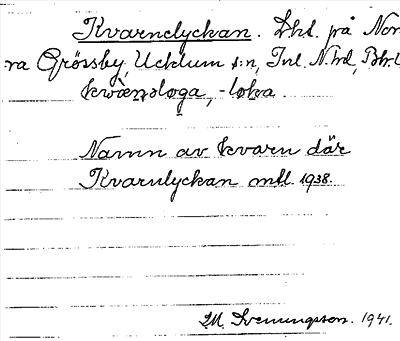 Kvarnelyckan. Lht. på Nor-
ra Grössby, Ucklum s:n, Inl. N. hd, Bh. l.
kwàɳsloga, -loka.
Namn av kvarn där
Kvarnlyckan omtl. 1938.
M. Svenungsson. 1941.